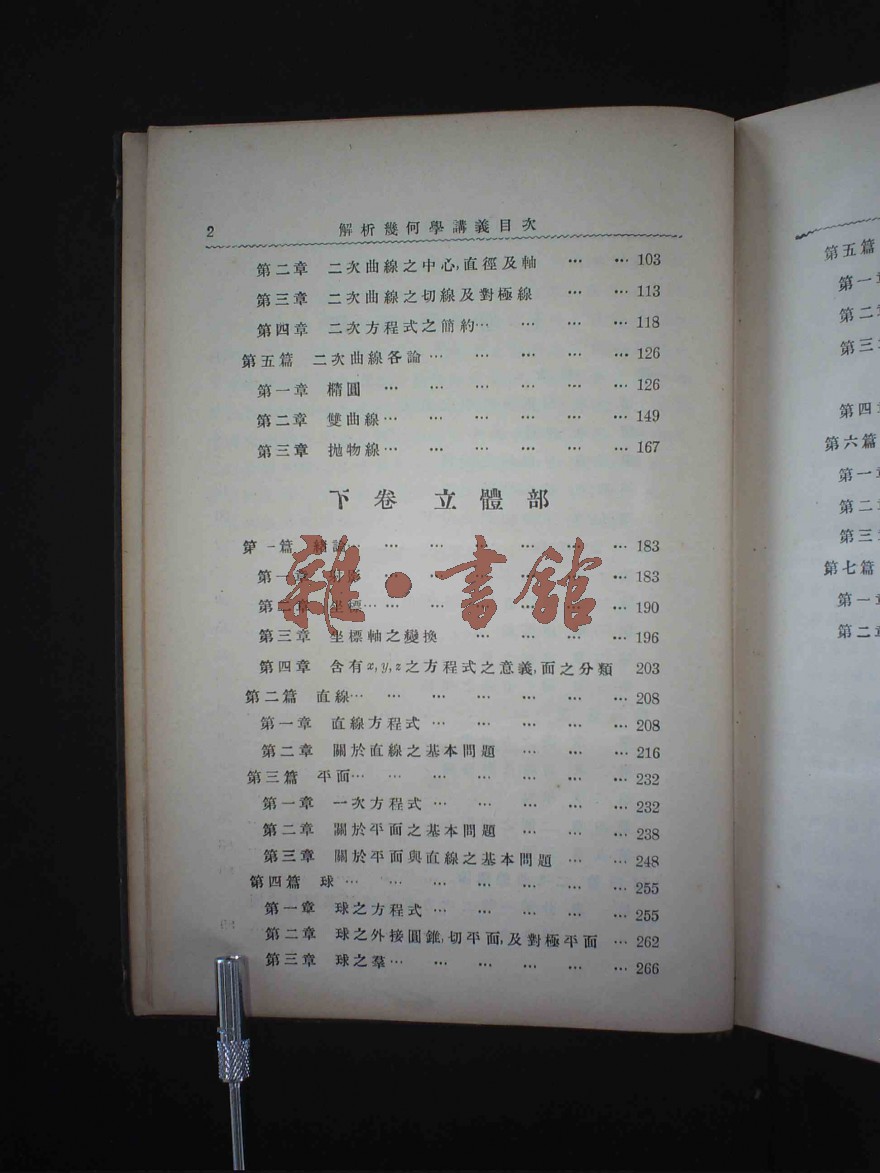 2 解析幾何學講義目次
第二章 二次曲線之中心,直徑及軸 … … 103
第三章 二次曲線之切線及對極線 … … 113
第四章 二次方程式之簡約… … … … 118
第五篇 二次曲線各論 … … … … … 126
第一章 橢圓 … … … … … … 126
第二章 雙曲線 … … … … … … 149
第三章 拋物線 … … … … … … 167
下卷 立體部
第一篇 緒論 … … … … … … … 183
第一章 … … … … … … 183
第二章 坐標 … … … … … … 190
第三章 坐標軸之變換 … … … … 196
第四章 含有x,y,z之方程式之意義,面之分類 203
第二篇 直線… … … … … … … 208
第一章 直線方程式 … … … … … 208
第二章 關於直線之基本問題 … … … 216
第三篇 平面… … … … … … … 232
第一章 一次方程式 … … … … … 232
第二章 關於平面之基本問題 … … … 238
第三章 關於平面與直線之基本問題 … … 248
第四篇 球 … … … … … … … 255
第一章 球之方程式 … … … … … 255
第二章 球之外接圓錐,切平面,及對極平面 … 262
第三章 球之羣… … … … … … 266
雜·書館
第五篇
第一
第二
第三
第四
第六篇
第一
第二
第三
第七篇
第一
第二